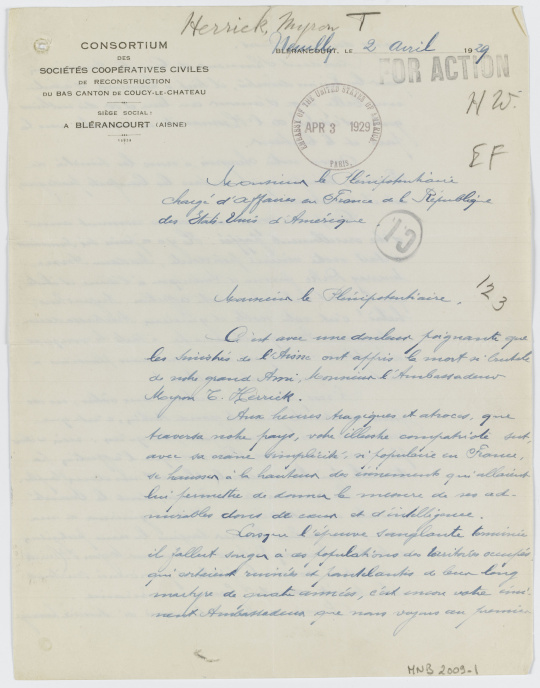 Herrick, Myron T
CONSORTIUM
DES
SOCIÉTÉS COOPÉRATIVES CIVILES
DE RECONSTRUCTION
DU BAS CANTON DE COUCY-LE-CHATEAU
SIÈGE SOCIAL :
A BLÉRANCOURT (AISNE)
BLÉRANCOURT, LE 2 avril 1929
FOR ACTION
HW.
EF
EMBASSY OF THE UNITED STATES OF AMERICA
APR 3 1929
PARIS.
Monsieur le Plénipotentiaire
chargé d'affaires en France de la République
des Etats-Unis d'Amérique
C1
123
Monsieur le Plénipotentiaire.
C'est avec une douleur poignante que
les sinistrés de l'Aisne ont appris la mort si brutale
de notre grand Ami, Monsieur l'Ambassadeur
Myron T. Herrick.
Aux heures tragiques et atroces, que
traversa notre pays, votre illustre compatriote sut,
avec sa simplicité, si populaire en France,
se hausser à la hauteur des évènements qui allaient
lui permettre de donner la mesure de ses ad-
mirables dons de cœur et d'intelligence.
Lorsque l'épreuve sanglante terminée
il fallut songer à ces populations des territoires occupés
qui sortaient ruinées et pantelantes de leur long
martyre de quatre années, c'est encore votre émi-
nent Ambassadeur que nous voyons au premier
MNB 2009-1